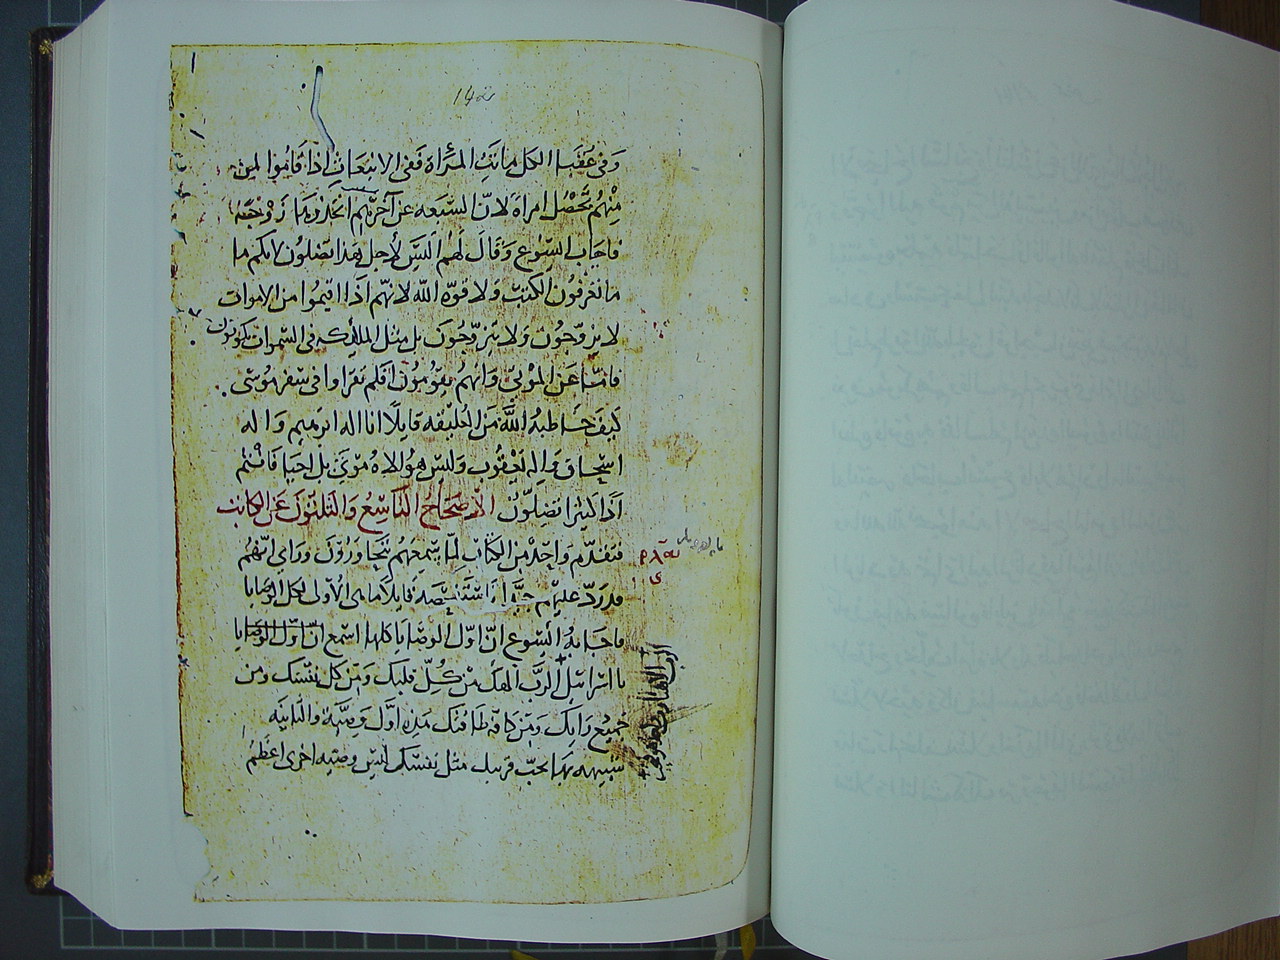 وفى عُقَبَا الكل ماتَتِ المَرأة ففى الانبعاث اذا قاموا لمن
مِنْهُم تَحْصُل امراة لانّ السبعه عن آخرهم اتخذوها زَوْجَة
فاجاب ايسوع وَقالَ لَهُم اَلَيسَ لأجل هذا تضلون لانكم ما
ما تعرفون الكتب ولا قوة الله لانهم اذا اقيموا من الاموات
لا يزوّجُون ولا يتزوّجُونَ بل مثل الملايكه فى السّموات يكونون
فامّا عن الموتى وانهم يقومون افلم تقراوا فى سفر موسى
كيف خاطبهُ اللَّه من العليقه قايلًا انا اله ابرهيم وَاله
اسحاق واله يعقوب وليس هو اله موتى بل احيا فانتم
اذًا كثيرا تضلّون الاِصْحَاحُ التاسِعُ والثلثونَ عن الكاتب
فتقدّم واحِد من الكتاب لمّا سمعهم يتجاورون وراى انّهُم
قد ردّ عليهم جيّدًا قايلًا ما هى الأولى لكل الوصايا
فاجابهُ ايسوع انّ اوّل الوصايا كلها اسمع
يا اسرائيل الرَّب الهك من كُلِّ قلبك ومن كل نفسك ومن
جميع رايك ومن كافّة طاقتك هذه اوّل وصيّة والثانيه
شبيهه بها تحبّ قريبك مثل نفسك ليس وصيه اخرى اعظم